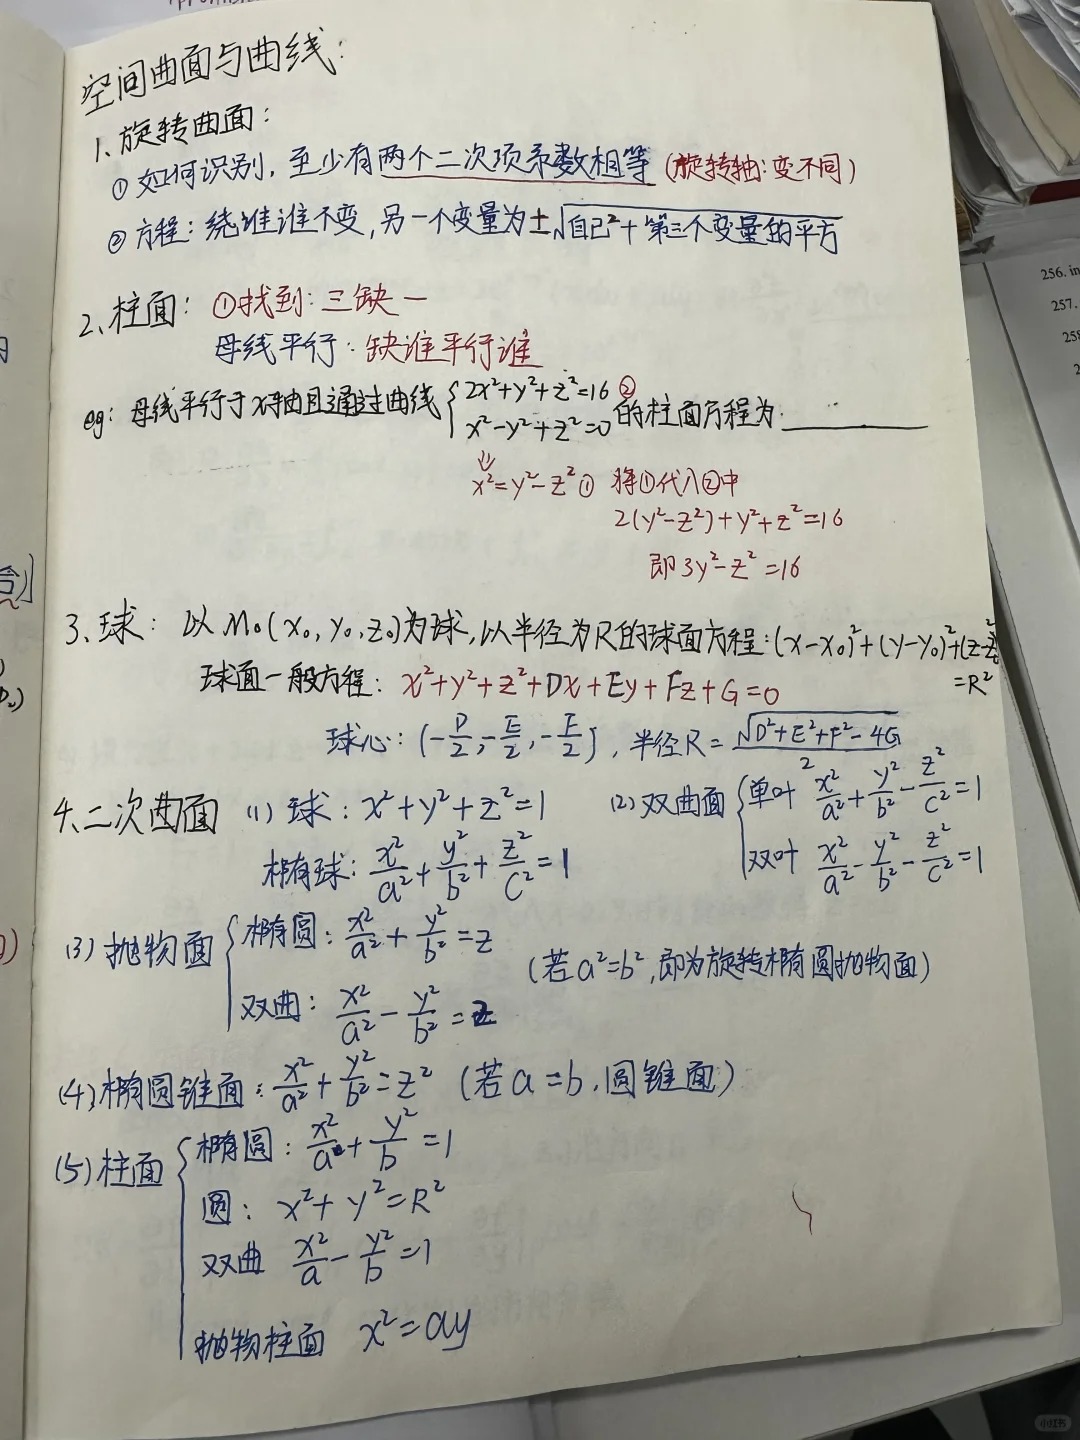 空间曲面与曲线：
1、旋转曲面：
① 如何识别，至少有两个二次项系数相等（旋转轴：变不同）
② 方程：绕谁谁不变，另一个变量为±√(自己²+第三个变量的平方)
2、柱面：①找到：三缺一
母线平行：缺谁平行谁
eg：母线平行于x轴且通过曲线{2x²+y²+z²=16 ② x²-y²+z²=0 的柱面方程为
⇓
x²=y²-z² ① 将①代入②中
2(y²-z²)+y²+z²=16
即 3y²-z²=16
3、球：以M₀(x₀,y₀,z₀)为球，以半径为R的球面方程：(x-x₀)²+(y-y₀)²+(z-z₀)²
=R²
球面一般方程：x²+y²+z²+Dx+Ey+Fz+G=0
球心：(-D/2,-E/2,-F/2)，半径R=√(D²+E²+F²-4G)/2
4、二次曲面 (1)球：x²+y²+z²=1 (2)双曲面{单叶 x²/a²+y²/b²-z²/c²=1
椭球：x²/a²+y²/b²+z²/c²=1 双叶 x²/a²-y²/b²-z²/c²=1
(3)抛物面{椭圆：x²/a²+y²/b²=z
(若a²=b²，即为旋转椭圆抛物面)
双曲：x²/a²-y²/b²=z
(4)椭圆锥面：x²/a²+y²/b²=z² (若a=b，圆锥面)
(5)柱面{椭圆：x²/a²+y²/b=1
圆：x²+y²=R²
双曲 x²/a-y²/b=1
抛物柱面 x²=ay
256. in
257.
258
小红书